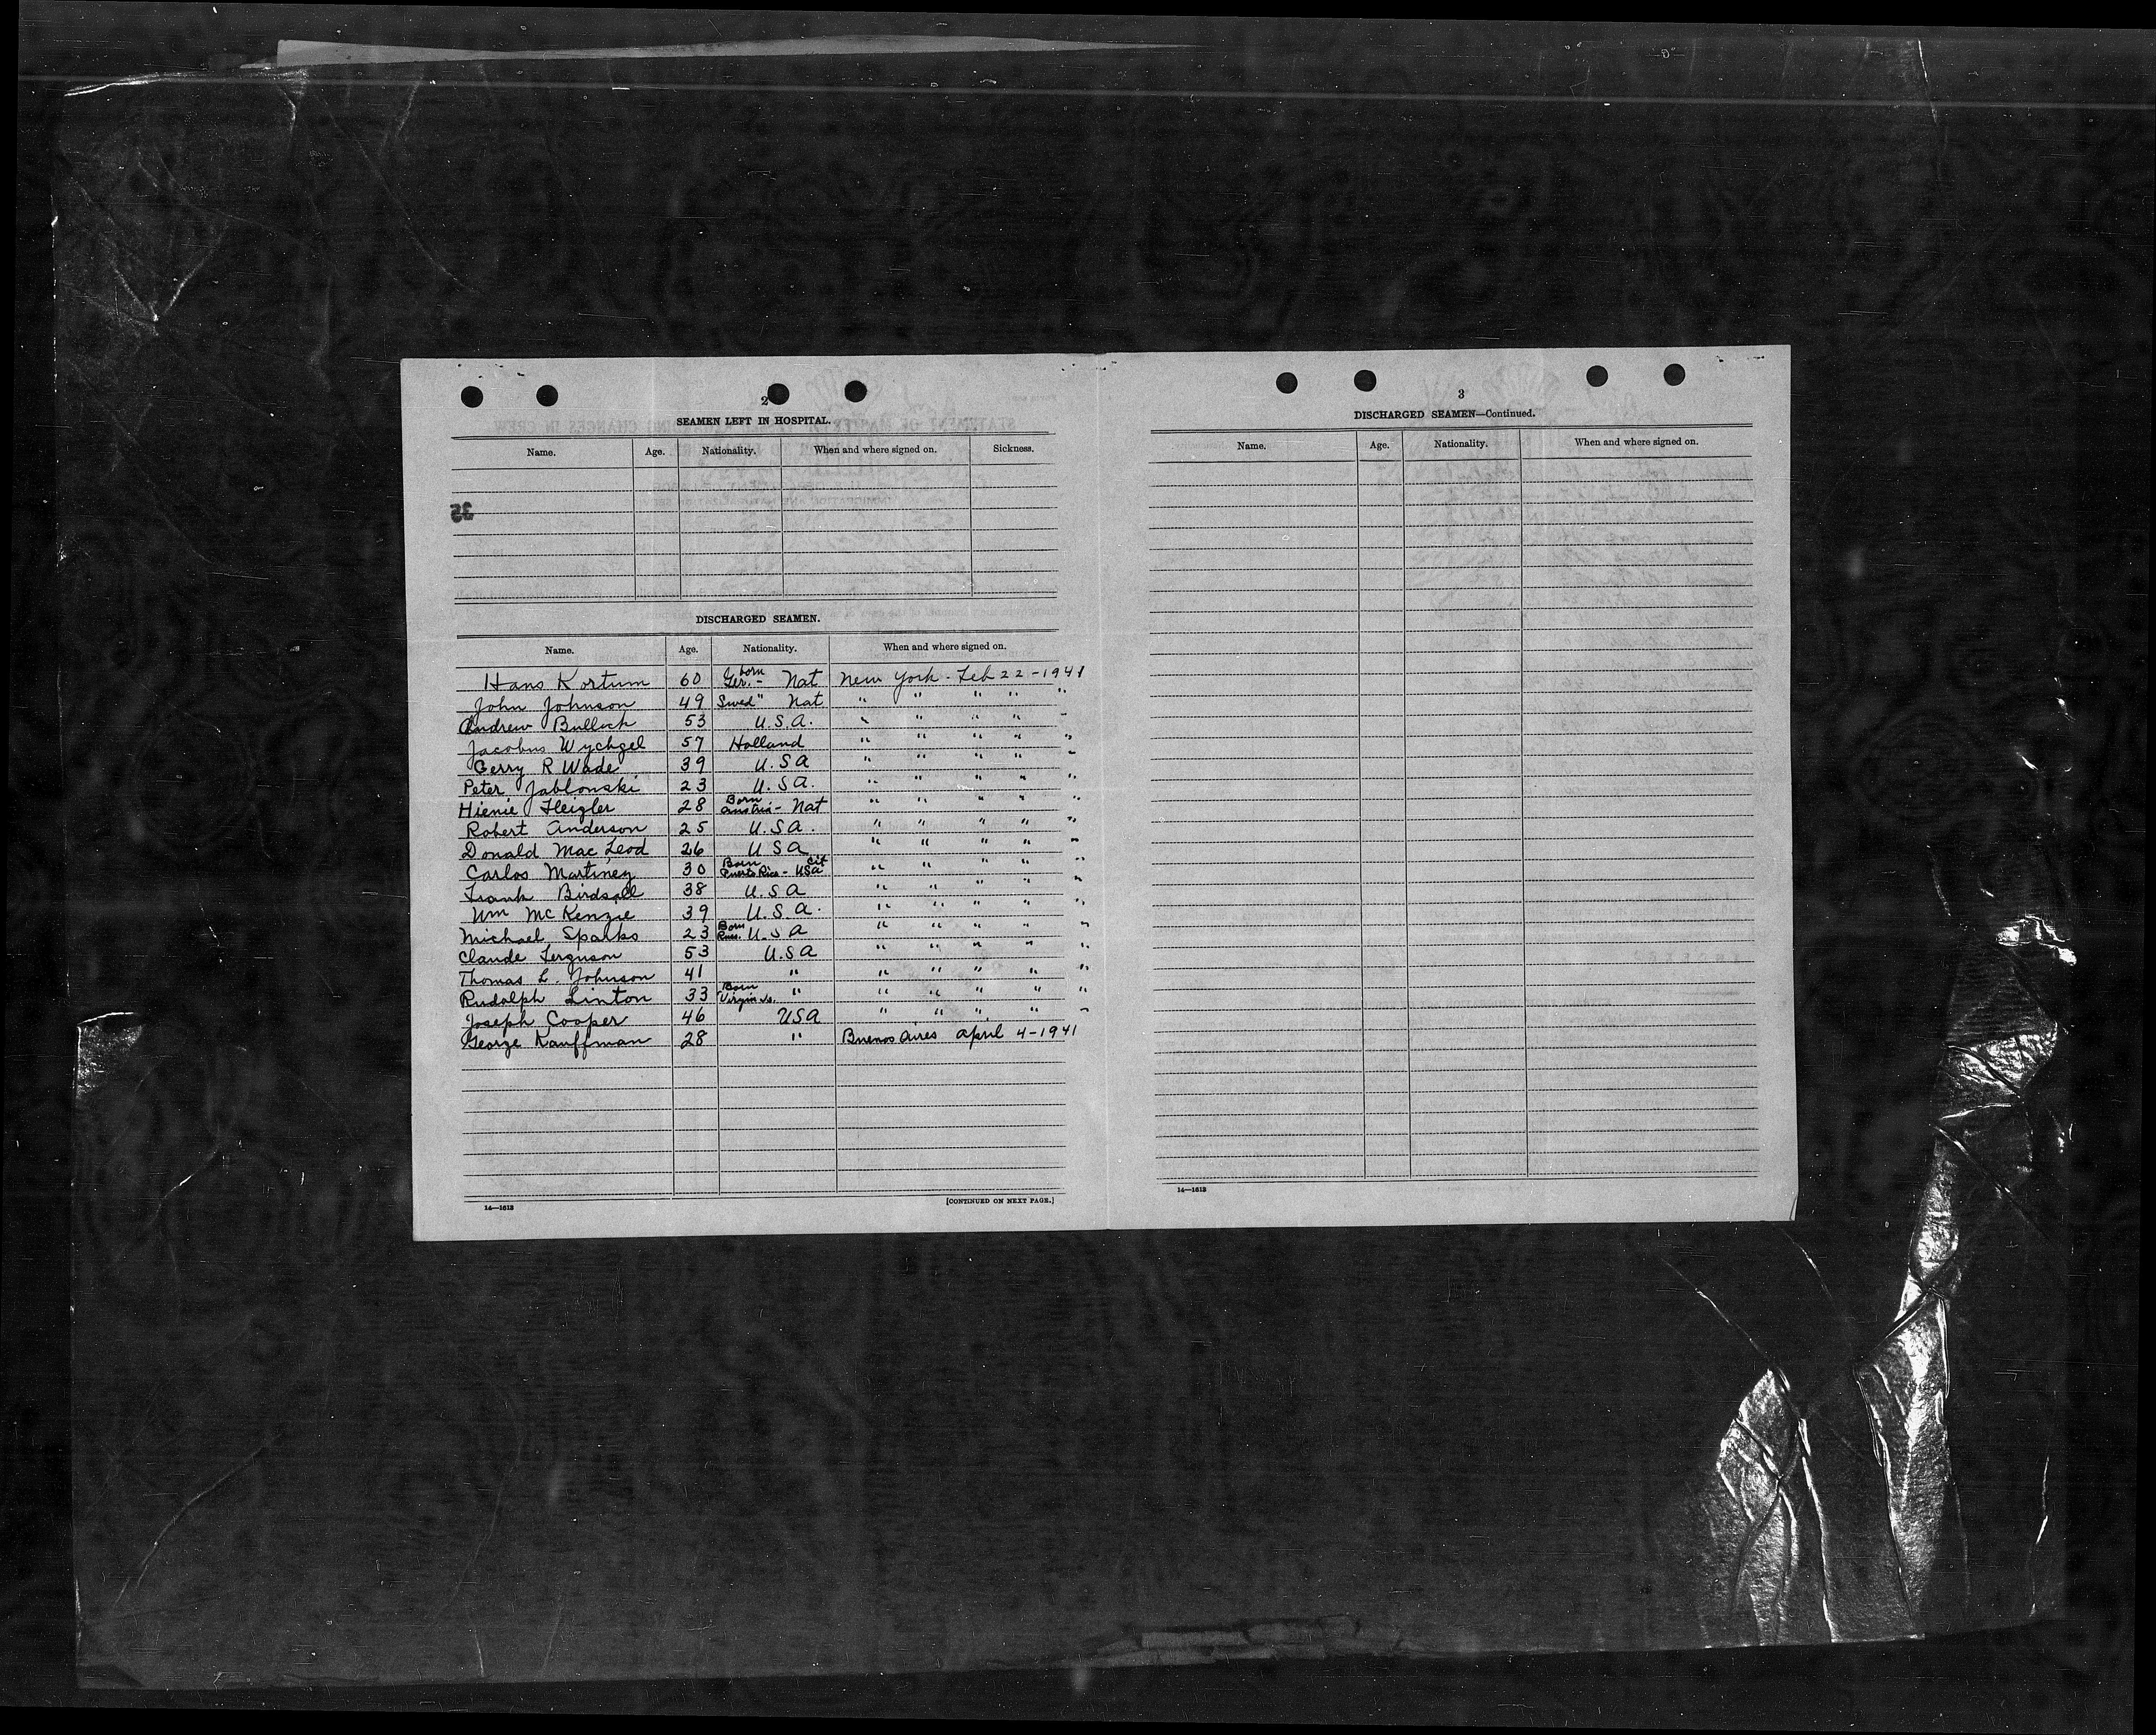 2
SEAMEN LEFT IN HOSPITAL.
Name. Age. Nationality. When and where signed on. Sickness.
35
DISCHARGED SEAMEN.
Name. Age. Nationality. When and where signed on.
Hans Kortum 60 born Ger. - Nat New York - Feb 22 - 1941
John Johnson 49 Swed " Nat " " " " "
Andrew Bullock 53 U.S.A. " " " " "
Jacobus Wychgel 57 Holland " " " " "
Gerry R Wade 39 U.S.A " " " " "
Peter Jablonski 23 U.S.A. " " " " "
Hienie Fleigler 28 Born Austria - Nat " " " " "
Robert Anderson 25 U.S.A. " " " " "
Donald Mac Leod 26 U S A " " " " "
Carlos Martinez 30 Born Puerto Rico - Cit USA " " " " "
Frank Birdsall 38 U.S.A " " " " "
Wm McKenzie 39 U.S.A. " " " " "
Michael Sparks 23 Born Rus. U.S.A " " " " "
Claude Ferguson 53 U.S.A " " " " "
Thomas L. Johnson 41 " " " " " "
Rudolph Linton 33 Born Virgin Is. " " " " " "
Joseph Cooper 46 USA " " " " "
George Kauffman 28 " Buenos Aires April 4 - 1941
[CONTINUED ON NEXT PAGE.]
14—1613
3
DISCHARGED SEAMEN—Continued.
Name. Age. Nationality. When and where signed on.
14—1613